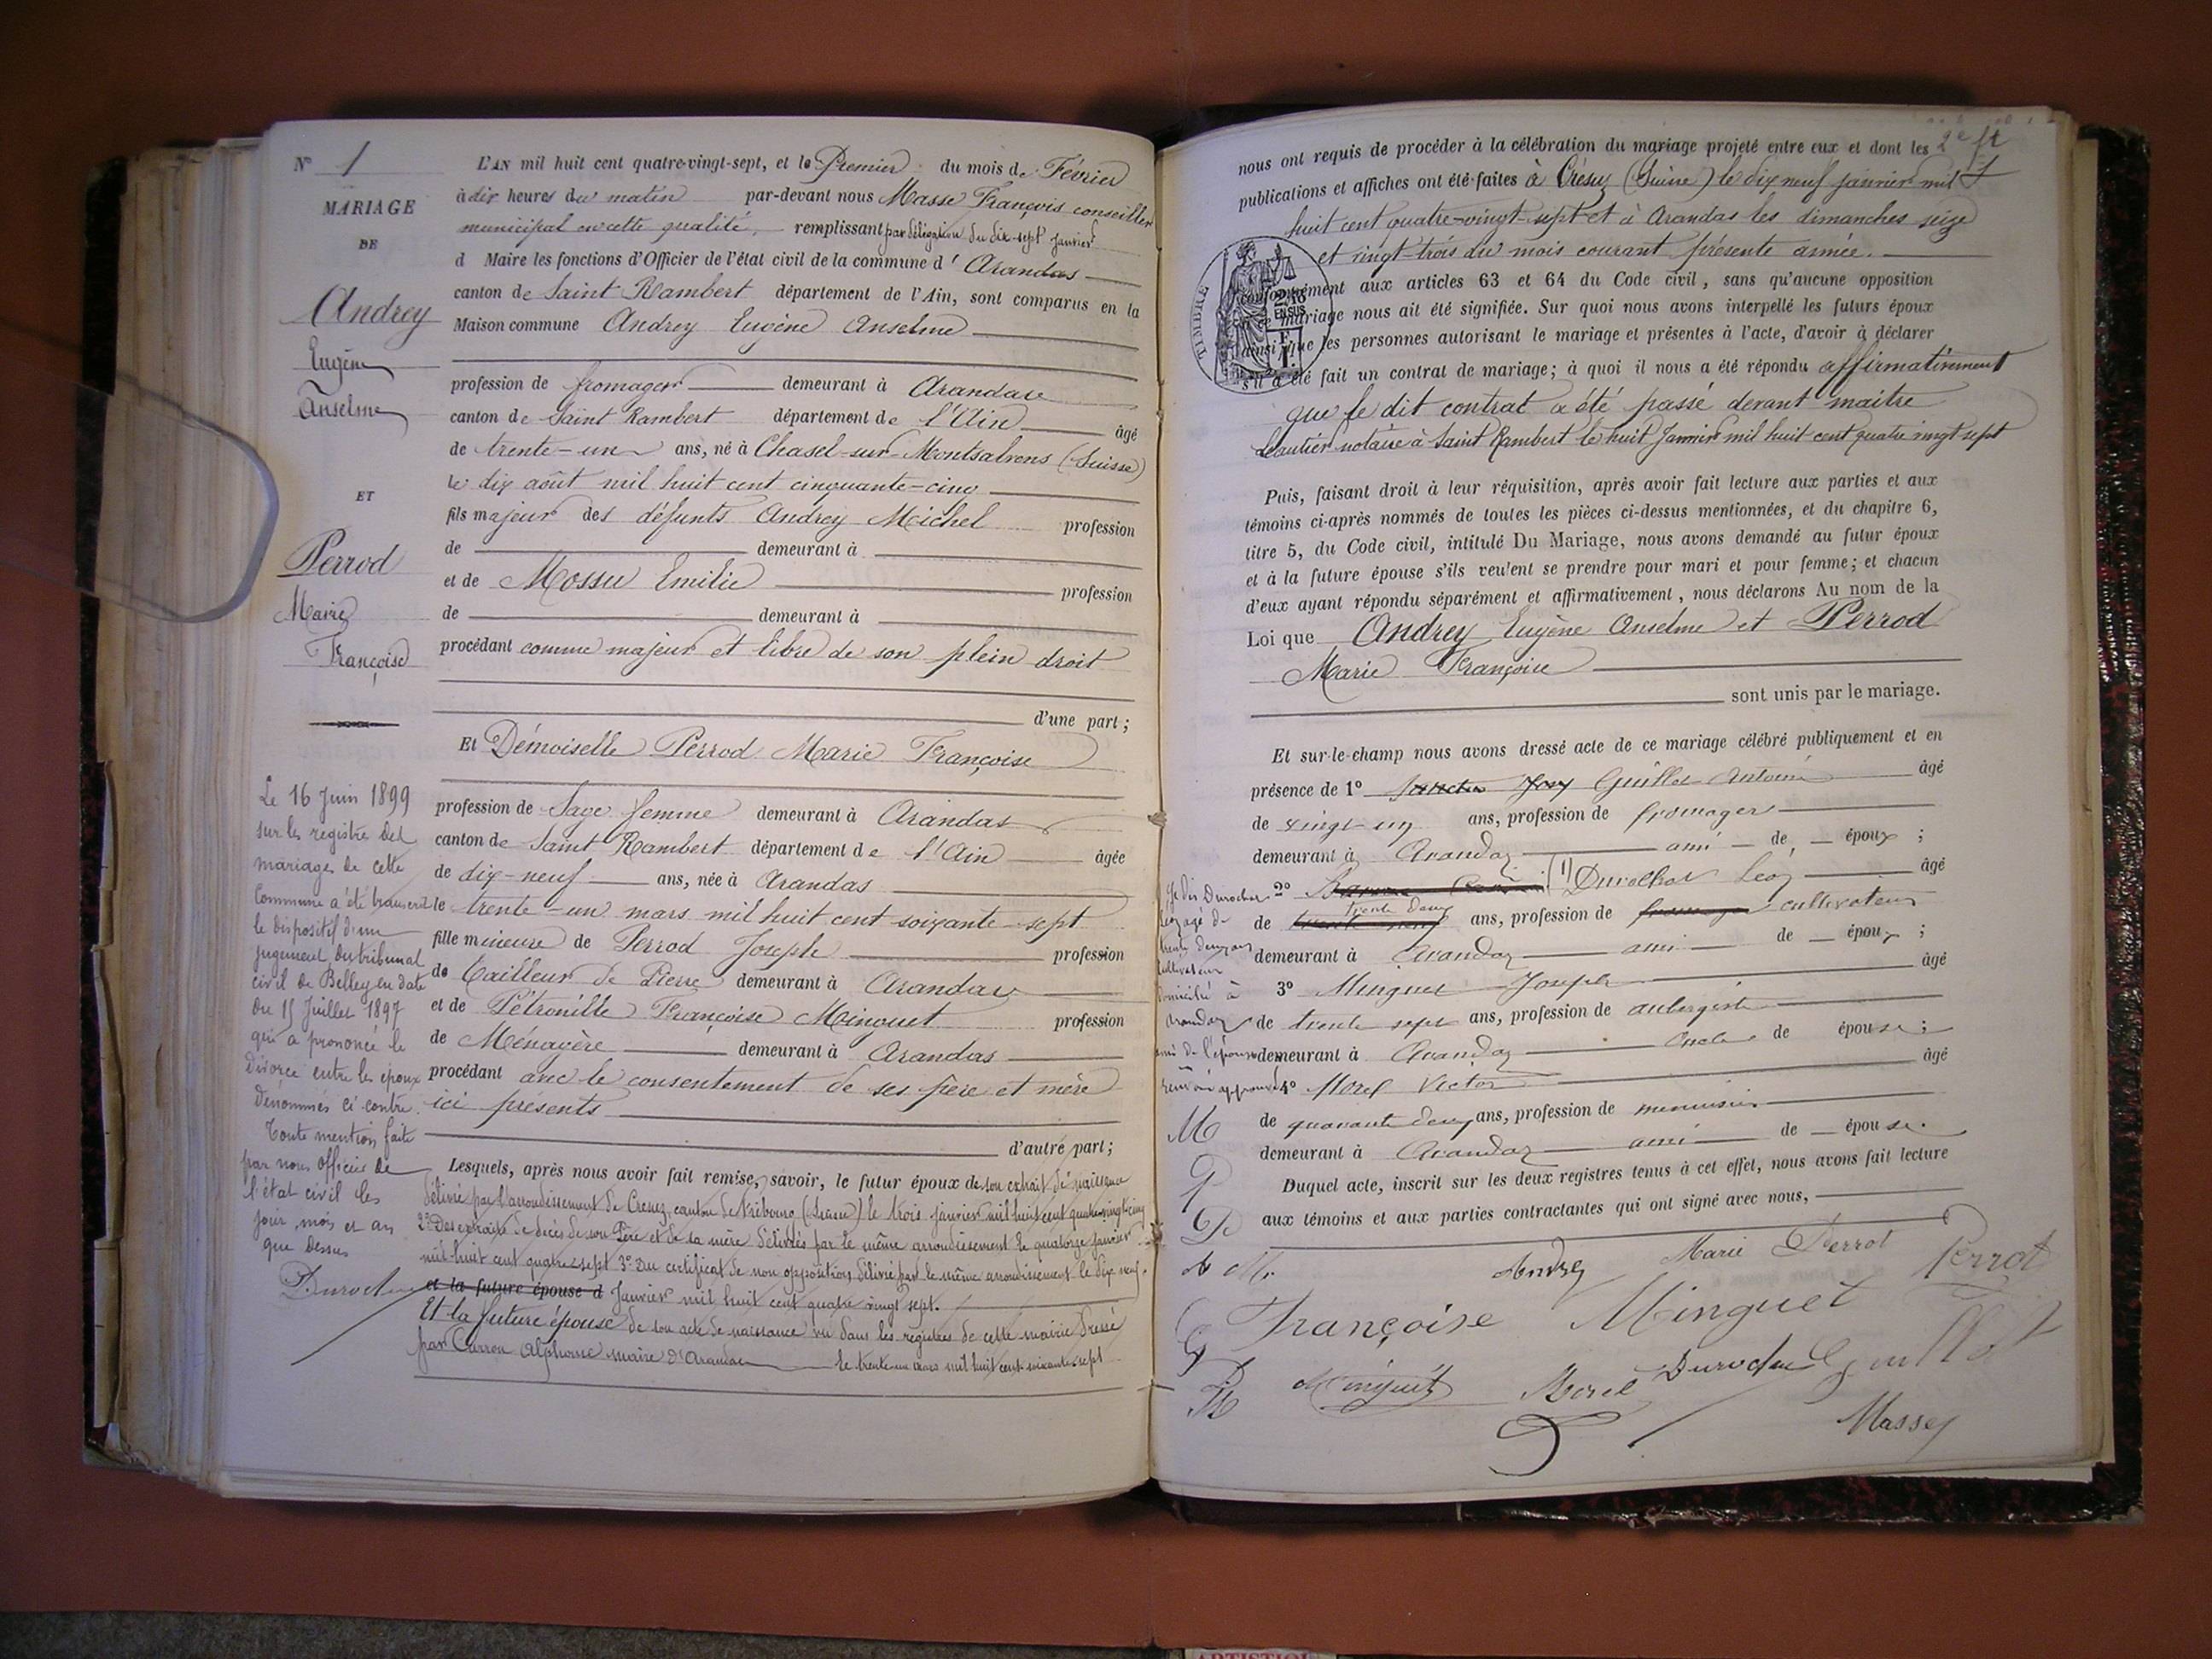 N° 1
MARIAGE
DE
Andrey
Eugène
Anselme
ET
Perrod
Marie
Françoise
Le 16 Juin 1899
sur les registre des
mariages de cette
Commune a été transcrit
le dispositif d'un
jugement du tribunal
civil de Belley en date
du 15 Juillet 1897
qui a prononcé le
divorce entre les époux
dénommés ci-contre.
Toute mention faite
par nous Officier de
l'état civil les
jour, mois et an
que dessus
Durochat
L'AN mil huit cent quatre-vingt-sept, et le Premier du mois de Février
à dix heures du matin par-devant nous Masse François conseiller
municipal en cette qualité, remplissant par délégation du dix-sept janvier
d Maire les fonctions d'Officier de l'état civil de la commune d' Arandas
canton de Saint Rambert département de l'Ain, sont comparus en la
Maison commune Andrey Eugène Anselme
profession de fromager demeurant à Arandas
canton de Saint Rambert département de l'Ain âgé
de trente-un ans, né à Chasel-sur-Montsalvens (Suisse)
le dix août mil huit cent cinquante-cinq
fils majeur des défunts Andrey Michel profession
de demeurant à
et de Mossu Emilie profession
de demeurant à
procédant comme majeur et libre de son plein droit
d'une part;
Et Démoiselle Perrod Marie Françoise
profession de Sage femme demeurant à Arandas
canton de Saint Rambert département de l'Ain âgée
de dix-neuf ans, née à Arandas
le trente-un mars mil huit cent soixante-sept
fille mineure de Perrod Joseph profession
de Tailleur de Pierre demeurant à Arandas
et de Pétronille Françoise Minguet profession
de Ménagère demeurant à Arandas
procédant avec le consentement de ses père et mère
ici présents
d'autre part;
Lesquels, après nous avoir fait remise, savoir, le futur époux de son extrait de naissance
délivré par l'arrondissement de Cresuz, canton de Fribourg (Suisse) le trois janvier mil huit cent quatre-vingt-cinq
2° Des extraits de décès de son Père et de sa mère délivrés par le même arrondissement le quatorze janvier
mil-huit cent quatre-sept 3° Du certificat de non opposition délivré par le même arrondissement le dix neuf
et la future épouse d Janvier mil huit cent quatre vingt sept.
Et la future épouse de son acte de naissance vu dans les registres de cette mairie dressé
par Carron Alphonse maire d'Arandas le trente-un mars mil huit cent soixante-sept
2e ft
nous ont requis de procéder à la célébration du mariage projeté entre eux et dont les
publications et affiches ont été faites à Crésuz (Suisse) le dix neuf janvier mil
huit cent quatre-vingt-sept et à Arandas les dimanches seize
et vingt-trois du mois courant présente année.
TIMBRE
conformément aux articles 63 et 64 du Code civil, sans qu'aucune opposition
à ce mariage nous ait été signifiée. Sur quoi nous avons interpellé les futurs époux
ainsi que les personnes autorisant le mariage et présentes à l'acte, d'avoir à déclarer
s'il a été fait un contrat de mariage; à quoi il nous a été répondu affirmativement
que le dit contrat a été passé devant maitre
notaire à Saint Rambert le huit Janvier mil huit cent quatre vingt sept
Puis, faisant droit à leur réquisition, après avoir fait lecture aux parties et aux
témoins ci-après nommés de toutes les pièces ci-dessus mentionnées, et du chapitre 6,
titre 5, du Code civil, intitulé Du Mariage, nous avons demandé au futur époux
et à la future épouse s'ils veulent se prendre pour mari et pour femme; et chacun
d'eux ayant répondu séparément et affirmativement, nous déclarons Au nom de la
Loi que Andrey Eugène Anselme et Perrod
Marie Françoise
sont unis par le mariage.
Et sur-le-champ nous avons dressé acte de ce mariage célébré publiquement et en
présence de 1° Guillot Antoine âgé
de vingt-un ans, profession de fromager
demeurant à Arandas ami de époux ;
2° (1) Durochat Léon âgé
de trente deux ans, profession de cultivateur
demeurant à Arandas ami de époux ;
3° Minguet Joseph âgé
de trente sept ans, profession de aubergiste
demeurant à Arandas Oncle de épouse ;
4° Morel Victor âgé
de quarante deux ans, profession de menuisier
demeurant à Arandas ami de épouse.
Je dis Durochat
Léon âgé de
trente deux ans
cultivateur
domicilié à
Arandas
ami de l'époux
renvoi approuvé
Duquel acte, inscrit sur les deux registres tenus à cet effet, nous avons fait lecture
aux témoins et aux parties contractantes qui ont signé avec nous,
Andrey Marie Perrot Perrot
Françoise Minguet
Minguet Morel Durochat Guillot
Massey